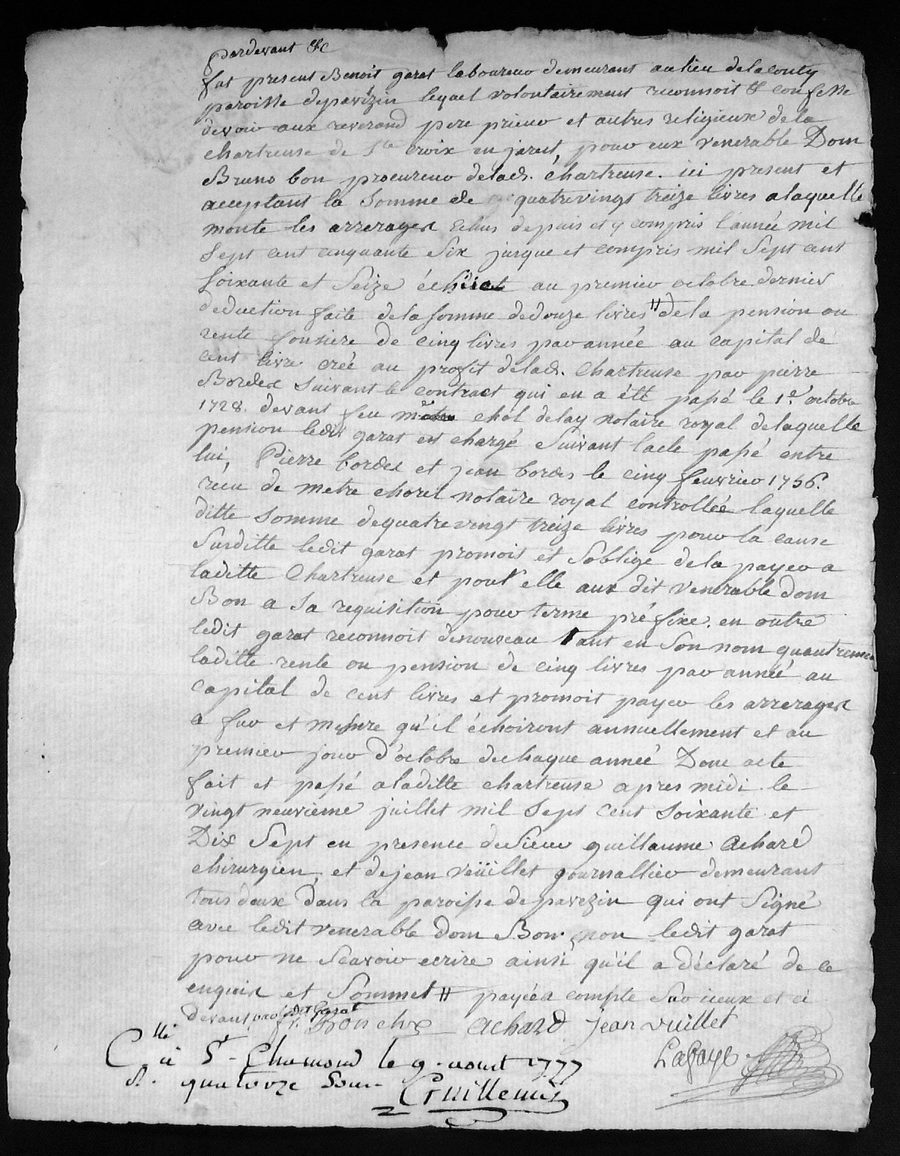 pardevant &c
fut present Benoit garat laboureur demeurant au lieu delacouty
paroisse depavezin lequel volontairement reconnoit & confesse
devoir aux reverand pere prieur et autres religieux de la
chartreuse de Ste croix en jarest, pour eux venerable Dom
Bruno bon procureur delad. chartreuse. ici present et
acceptant la somme de quatrevingt treize livres alaquelle
monte les arrerages echus depuis et y compris l'année mil
sept cent cinquante six jusque et compris mil sept cent
soixante et seize échue au premier octobre dernier
deduction faite dela somme dedouze livres # de la pension ou
rente fonsiere de cinq livres par année au capital de
cent livre creé au profit delad. chartreuse par pierre
Bordes suivant le contract qui en a été passé le 1er octobre
1728. devant feu chol delay notaire royal delaquelle
pension ledit garat est chargé suivant lacte passé entre
lui, Pierre bordes et jean bordes le cinq feuvrier 1756.
recu de metre chorel notaire royal controllée laquelle
ditte somme dequatrevingt treize livres pour la cause
susditte ledit garat promoit et soblige de la payer a
laditte Chartreuse et pour elle aux dit venerable dom
Bon a sa requisition pour terme préfixe. en outre
ledit garat reconnoit denouveau tant en son nom quautrement
laditte rente ou pension de cinq livres par année au
capital de cent livres et promoit payer les arrerages
a fur et mesure qu'il échoiront annuellement et au
premier jour d'octobre dechaque année Donc acte
fait et passé aladitte chartreuse apres midi le
vingt neuvieme juillet mil sept cent soixante et
Dix sept en presence deSieur guillaume achard
chirurgien, et dejean veüillet journallier demeurant
tous deux dans la paroisse depavezin qui ont signé
avec ledit venerable dom Bon non ledit garat
pour ne scavoir ecrire ainsi qu'il a déclaré de ce
enquis et sommet # payée a compte sur iceux et ci
devant par ledit Garat
achard jean vuillet
Cllé à St Chamond le 9. aout 1777 Lafayo
R. quatorze sous Guillemin